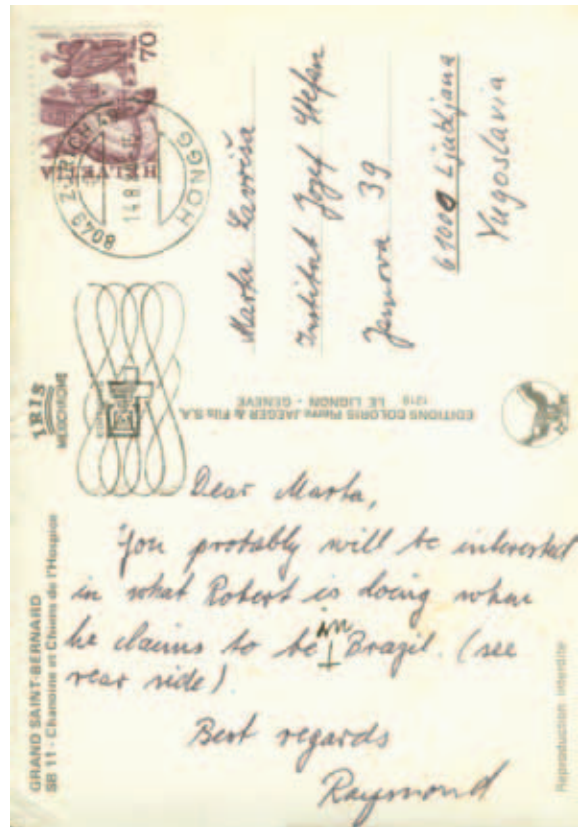 HELVETIA 70
8049 ZÜRICH 49
14.8.
HÖNGG
Marta
Institut Jozef Stefan
Jamova 39
61000 Ljubljana
Yugoslavia
IRIS
MEXICHROME
EDITIONS COLORIS Pierre JAEGER & Fils S.A.
1219 LE LIGNON - GENÈVE
GRAND SAINT-BERNARD
SB 11 - Chanoine et Chiens de l'Hospice
Dear Marta,
You probably will be interested
in what Robert is doing when
he claims to be in Brazil. (see
rear side).
Best regards
Raymond
Reproduction interdite